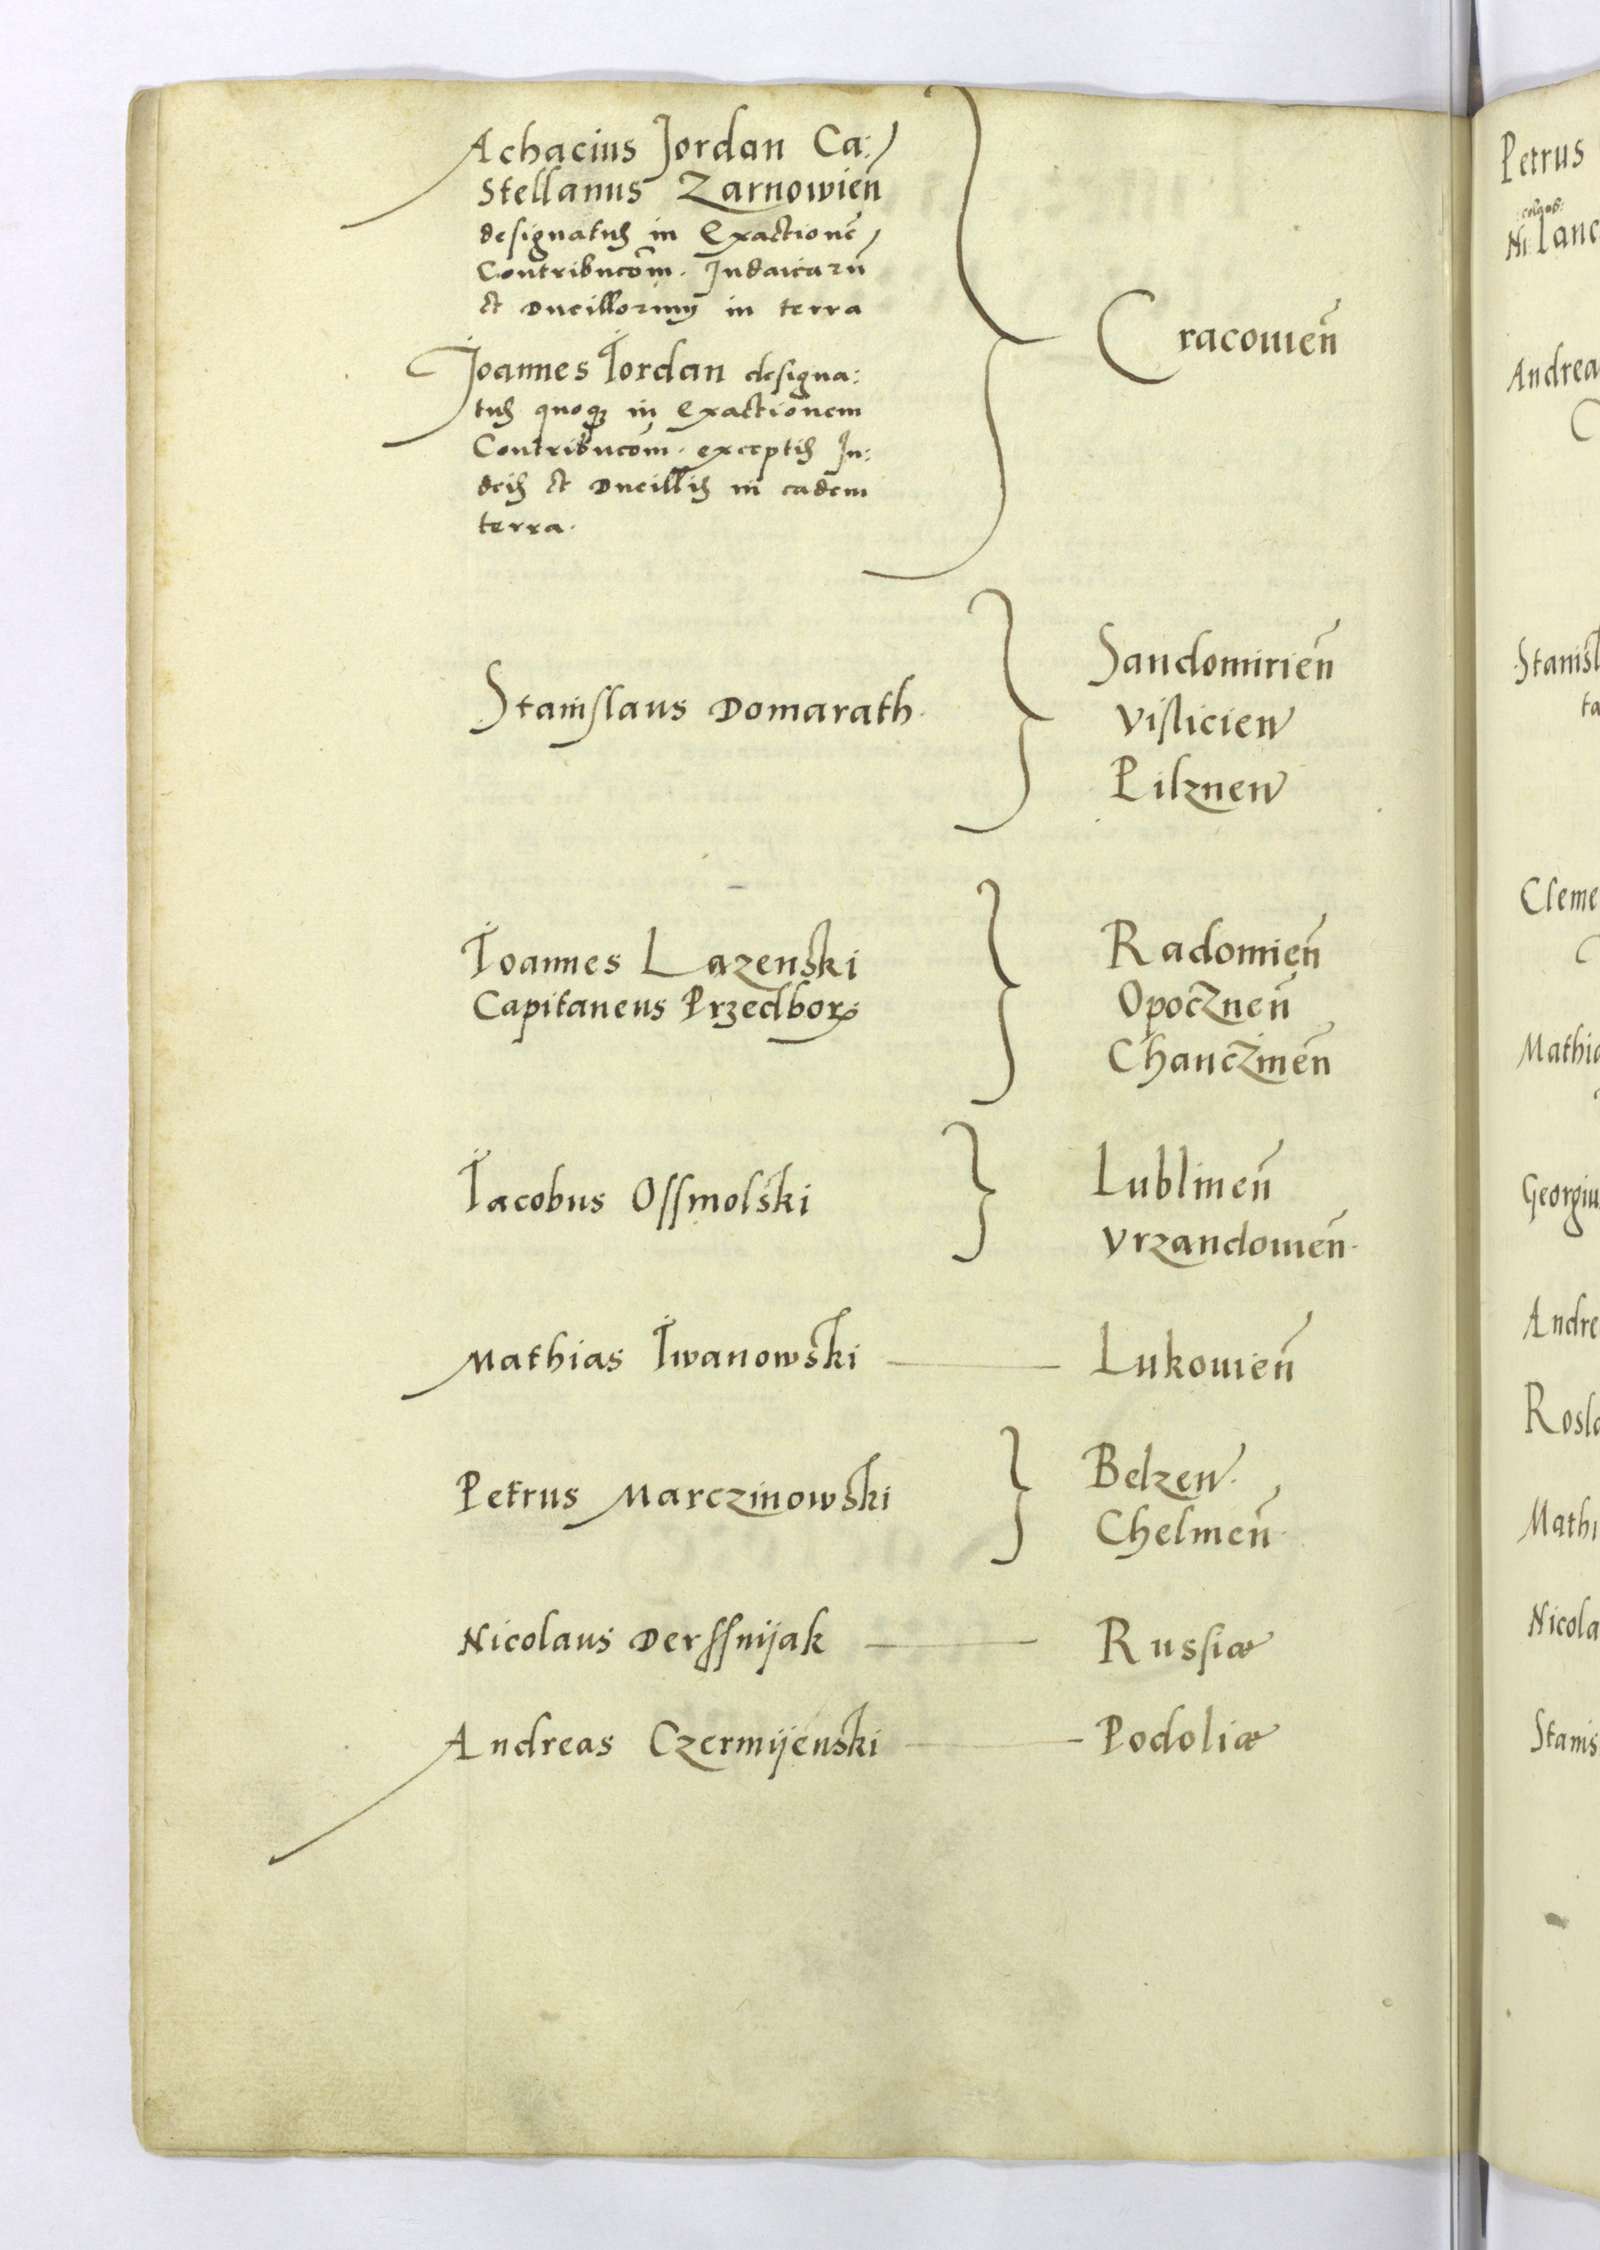 Achacius Jordan Ca:
stellanus Zarnowien̄
designatus in Exactionē
Contribucōm. Judaicarū
et Ducillorum in terra
Cracouien̄
Joannes Iordan designa:
tus quoq; in Exactionem
Contribucōm. exceptis Ju:
deis et Ducillis in eadem
terra.
Sandomirien̄
Stanislaus Domarath.
Vislicien
Pilznen
Ioannes Lazenski
Radomien̄
Capitaneus Przedbor
Opocznen̄
Chanczinen̄
Iacobus Ossmolski
Lublinen̄
Vrzandouien̄.
Mathias Iwanowski
Lukouien̄
Petrus Marczinowski
Belzen.
Chelmen̄
Nicolaus Derssnijak
Russiæ
Andreas Czermijenski
Podoliæ
Petrus
Ni
Andrea
Stanisl
ta
Cleme
Mathia
Georgiu
Andre
Rosla
Mathi
Nicola
Stanis